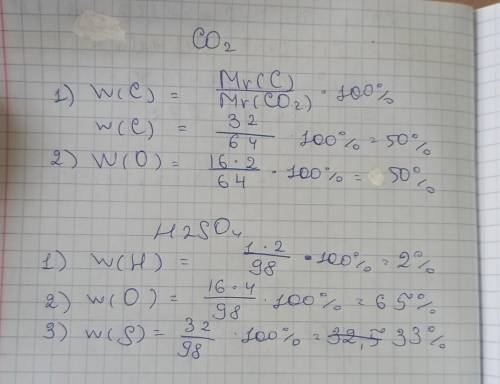 CO2
1) W(C) = Mr(C) / Mr(CO2) · 100%
W(C) = 32 / 64 · 100% = 50%
2) W(O) = 16·2 / 64 · 100% = 50%
H2SO4
1) W(H) = 1·2 / 98 · 100% = 2%
2) W(O) = 16·4 / 98 · 100% = 65%
3) W(S) = 32 / 98 · 100% = 32,5 33%